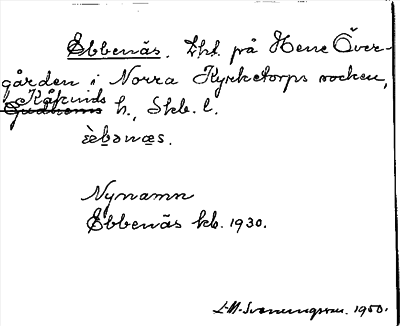 Ebbenäs. Lht. på Hene Över-
gården i Norra Kyrketorps socken,
Kåkinds
Gudhems h., Skb. l.
èbənæs.
Nynamn
Ebbenäs kb. 1930.
L-M. Svenungsson. 1950.